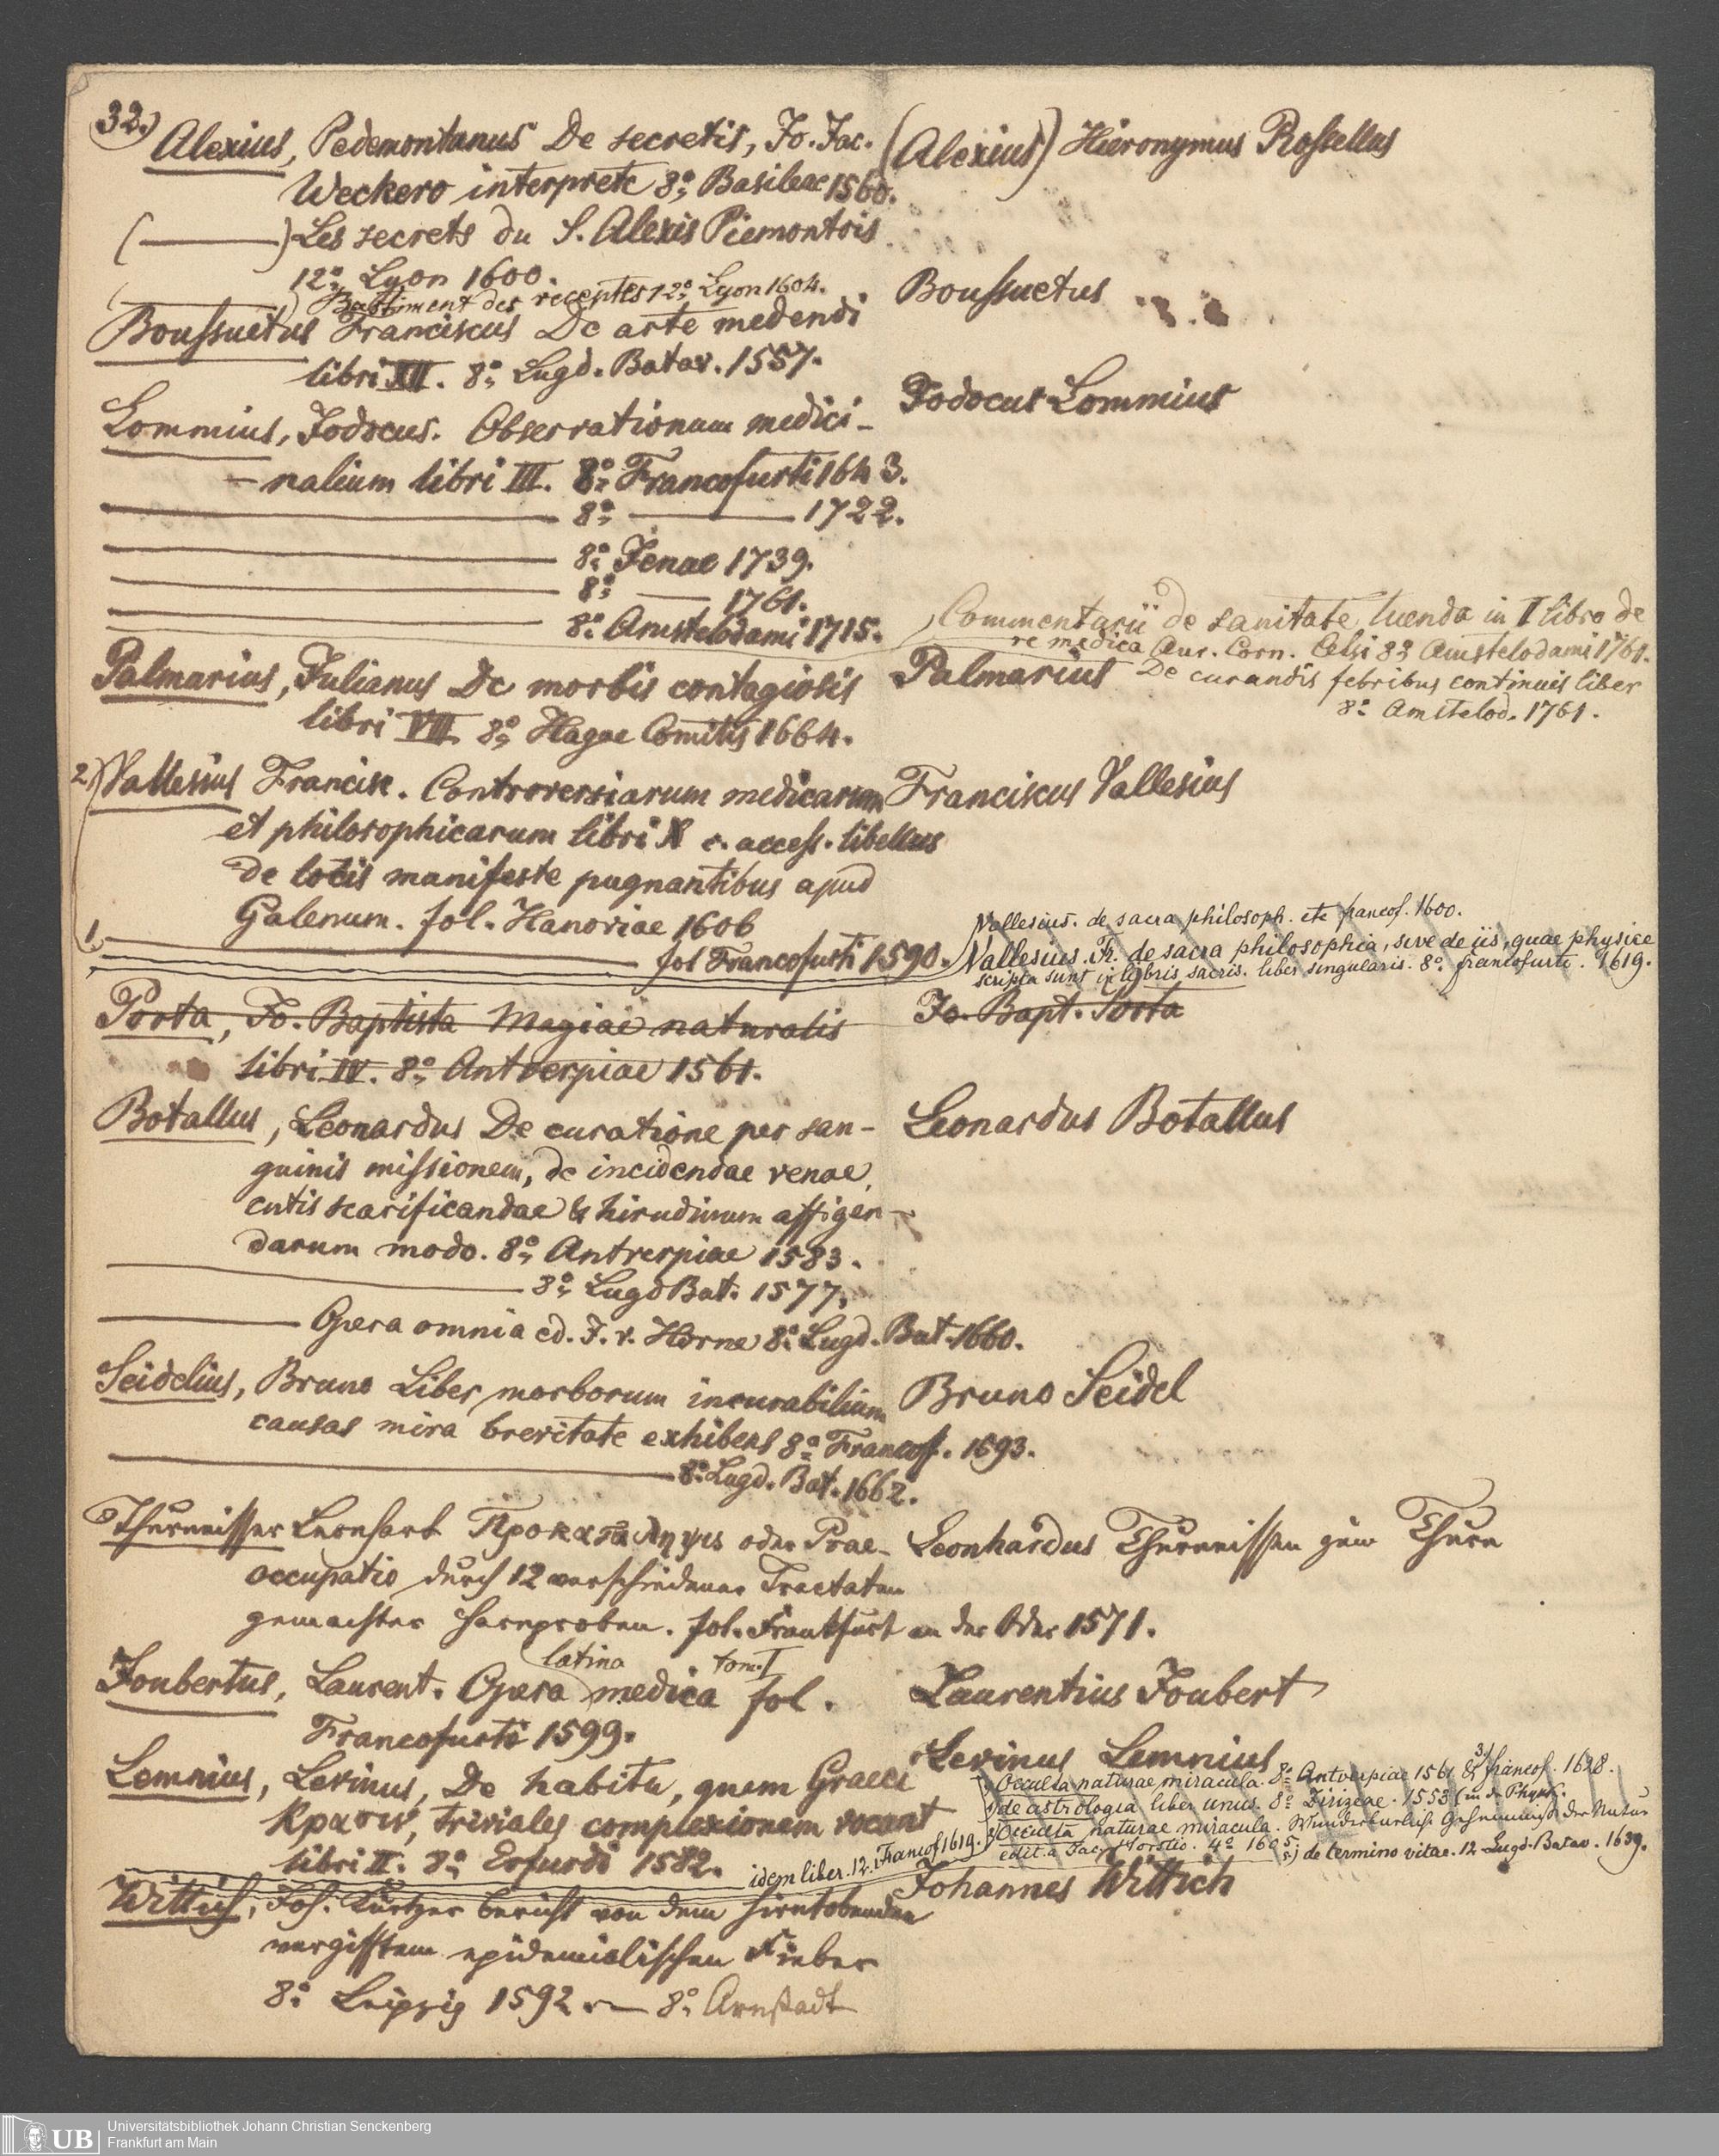 32.)
Alexius, Pedemontanus De secretis, Jo. Jac.
Weckero interprete 8º, Basileae 1560.
(———) Les secrets du S. Alexis Piemontois
12º, Lyon 1600.
(———) Bastiment des receptes 12º, Lyon 1604.
Boussuetus Franciscus De arte medendi
libri XII. 8º, Lugd. Batav. 1557.
Lommius, Jodocus. Observationum medici-
-nalium libri III. 8º, Francofurti 1643.
——— 8º, ——— 1722.
——— 8º, Jenae 1739.
——— 8º, —— 1761.
——— 8º, Amstelodami 1715.
Palmarius, Julianus De morbis contagiosis
libri VII. 8º, Hagae Comitis 1664.
2.) Vallesius Francisc. Controversiarum medicarum
et philosophicarum libri X c. access. libellus
de locis manifeste pugnantibus apud
Galenum. fol. Hanoviae 1606
1. ——— fol Francofurti 1590.
Porta, Jo. Baptista Magiae naturalis
libri IV. 8º, Antverpiae 1561.
Botallus, Leonardus De curatione per san-
guinis missionem, de incidendae venae,
cutis scarificandae & hirudinum affigen-
darum modo. 8º, Antverpiae 1583.
——— 8º, Lugd Bat. 1577.
——— Opera omnia ed. J. v. Horne 8º, Lugd. Bat. 1660.
Seidelius, Bruno Liber morborum incurabilium
causas mira brevitate exhibens 8º, Francof. 1693.
——— 8º, Lugd. Bat. 1662.
Thurneisser Leonhart Προκατάληψις oder Prae-
occupatio durch 12 verschiedener Tractaten
gemachter Harnproben. fol. Frankfurt an der Oder 1571.
Joubertus, Laurent. Opera latina medica tom. I fol.
Francofurti 1599.
Lemnius, Levinus, De habitu, quem Graeci
Κρασιν, triviales complexionem vocant
libri II. 8º, Erfurdi 1582. idem liber. 12. Francof 1619.
Wittich, Joh. Kurtzer bericht von dem hirntobenden
vergifftem epidemialischen Fieber
8º, Leipzig 1592. — 8º, Arnstadt
(Alexius) Hieronymus Rossellus
Boussuetus
Jodocus Lommius
Commentarii de sanitate tuenda in I libro de
re medica Aur. Corn. Celsi 8º Amstelodami 1761.
De curandis febribus continuis liber
8º Amstelod. 1761.
Palmarius
Franciscus Vallesius
Vallesius. de sacra philosoph. etc francof. 1600.
Vallesius. Fr. de sacra philosophia, sive de iis, quae physice
scripta sunt in libris sacris. liber singularis. 8º. francofurti. 1619.
Jo. Bapt. Porta
Leonardus Botallus
Bruno Seidel
Leonhardus Thurneisser zum Thurn
Laurentius Joubert
Levinus Lemnius
Occulta naturae miracula. 8º Antverpiae 1561 & 3) francof. 1628.
de astrologia liber unus. 8º Jirizeae. 1553 (in de Physk.
Occulta naturae miracula. Wunderbarliche Geheimnisse der Natur
edit. a Jac. Horstio. 4º 1605. 5.) de termino vitae. 12 Lugd. Batav. 1639.
Johannes Wittich
Universitätsbibliothek Johann Christian Senckenberg
Frankfurt am Main
UB